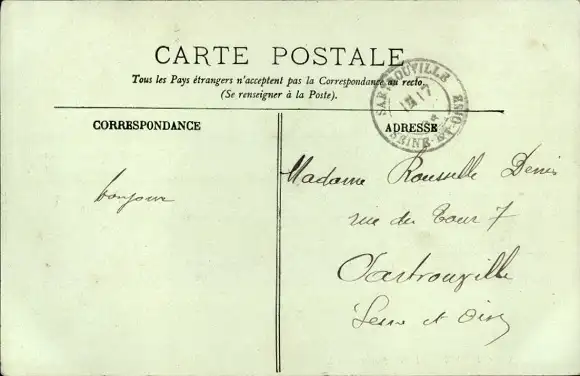 CARTE POSTALE
Tous les Pays étrangers n'acceptent pas la Correspondance au recto.
(Se renseigner à la Poste).
SARTROUVILLE
17
SEINE-ET-OISE
CORRESPONDANCE
ADRESSE
bonjour
Madame Rousselle Denis
rue du Tour 7
Sartrouville
Seine et Oise